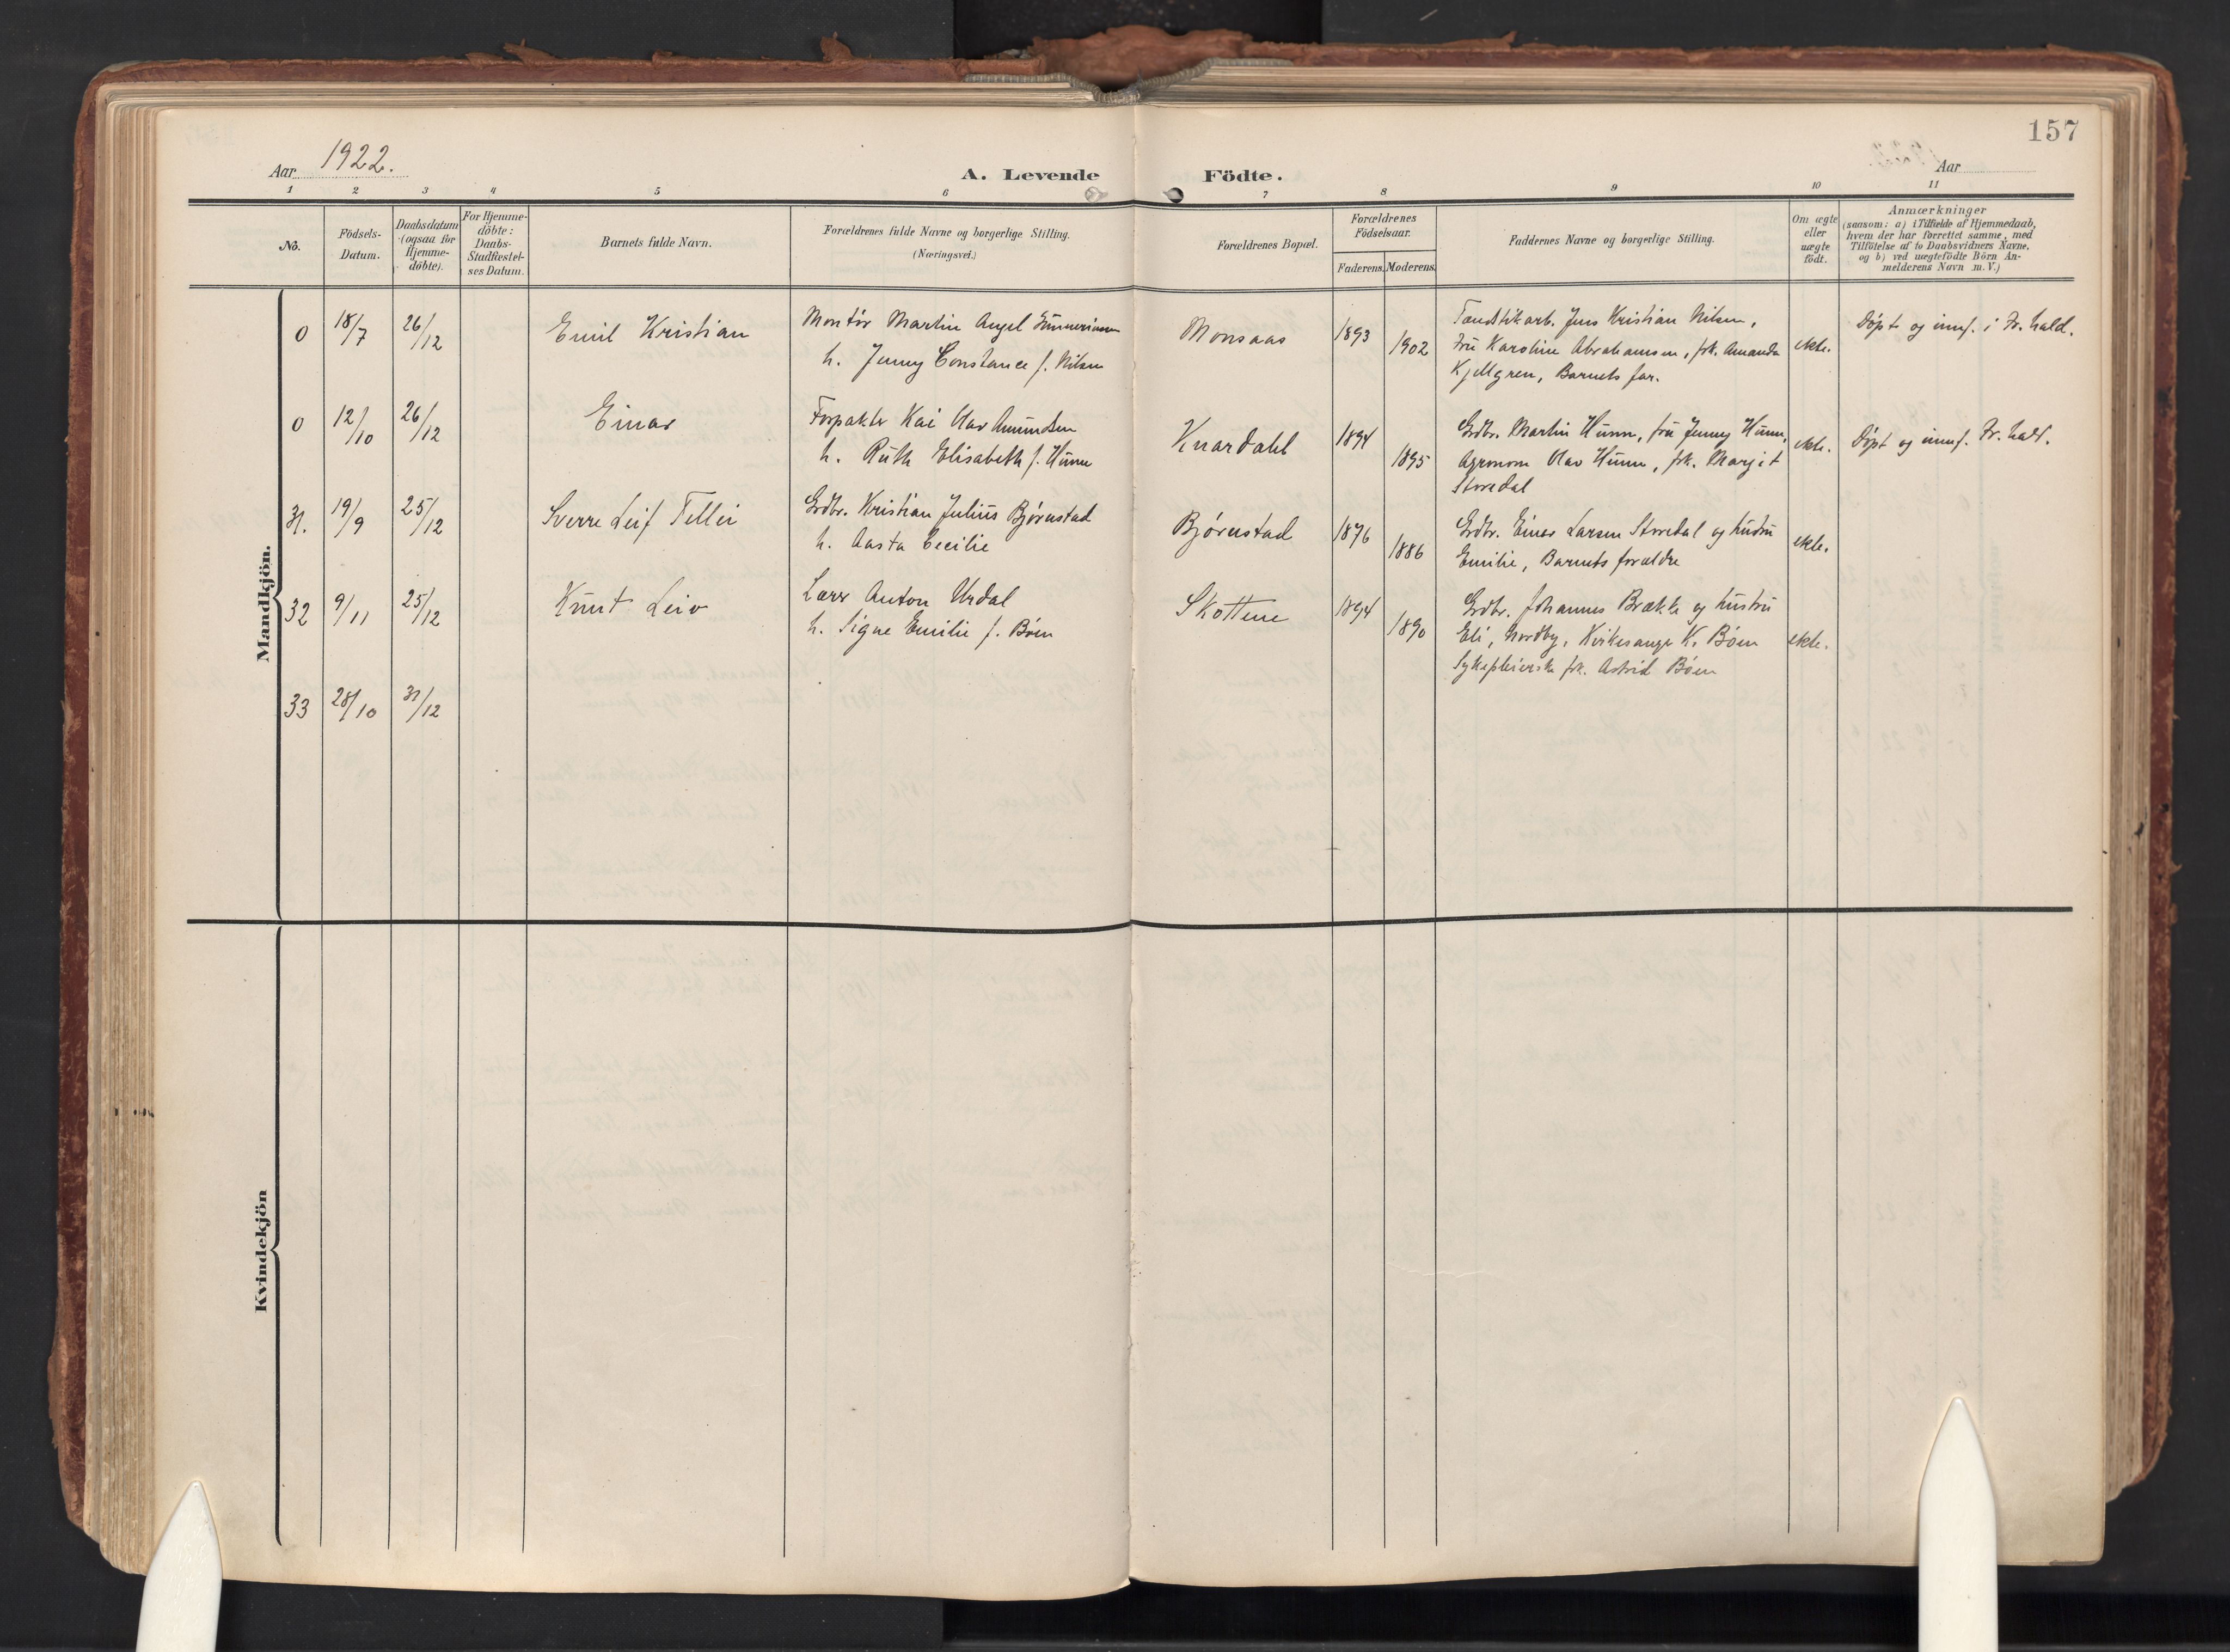 157
Aar 1922.
A. Levende Födte.
Aar
1 2 3 4 5 6 7 8 9 10 11
No.
Födsels-
Datum.
Daabsdatum
(ogsaa for
Hjemme-
döbte).
For Hjemme-
döbte:
Daabs-
Stadfæstel-
ses Datum.
Barnets fulde Navn.
Forældrenes fulde Navne og borgerlige Stilling.
(Næringsvei.)
Forældrenes Bopæl.
Forældrenes
Födselsaar.
Faderens. Moderens.
Faddernes Navne og borgerlige Stilling.
Om ægte
eller
uægte
födt.
Anmærkninger
(saasom: a) i Tilfælde af Hjemmedaab,
hvem der har forrettet samme, med
Tilföielse af to Daabsvidners Navne,
og b) ved uægtefödte Börn An-
melderens Navn m. V.)
Mandkjön.
0 18/7 26/12 Emil Kristian
Montör Martin Angel
h. Jenny Constance f. Nilsen
Monsaas 1893 1902
Tændstikarb. Jens Kristian Nilsen,
fru Karoline Abrahamsen, frk. Amanda
Kjellgren, Barnets far.
ekte.
Döpt og innf. i Fr.hald.
0 12/10 26/12 Einar
Forpakter Kai Olav Amundsen
h. Ruth Elisabeth f. Hunn
Knardahl 1894 1895
Grdbr. Martin Hunn, fru Jenny Hunn,
Agronom Olav Hunn, frk. Margit
Storedal
ekte.
Döpt og innf. Fr.hald.
31. 19/9 25/12 Sverre Leif Tellei
Grdbr. Kristian Julius Bjørnstad
h. Aasta Cecilie
Bjørnstad 1876 1886
Grdbr. Einar Larsen Storedal og hustru
Emilie, Barnets forældre
ekte.
32 9/11 25/12 Knut Leiv
Lærer Anton Urdal
h. Signe Emilie f. Bøen
Skottene 1894 1890
Grdbr. Johannes Brække og hustru
Eli, Nordby, Kirkesanger K. Bøen
Sykepleierske frk. Astrid Bøen
ekte.
33 28/10 31/12
Kvindekjön